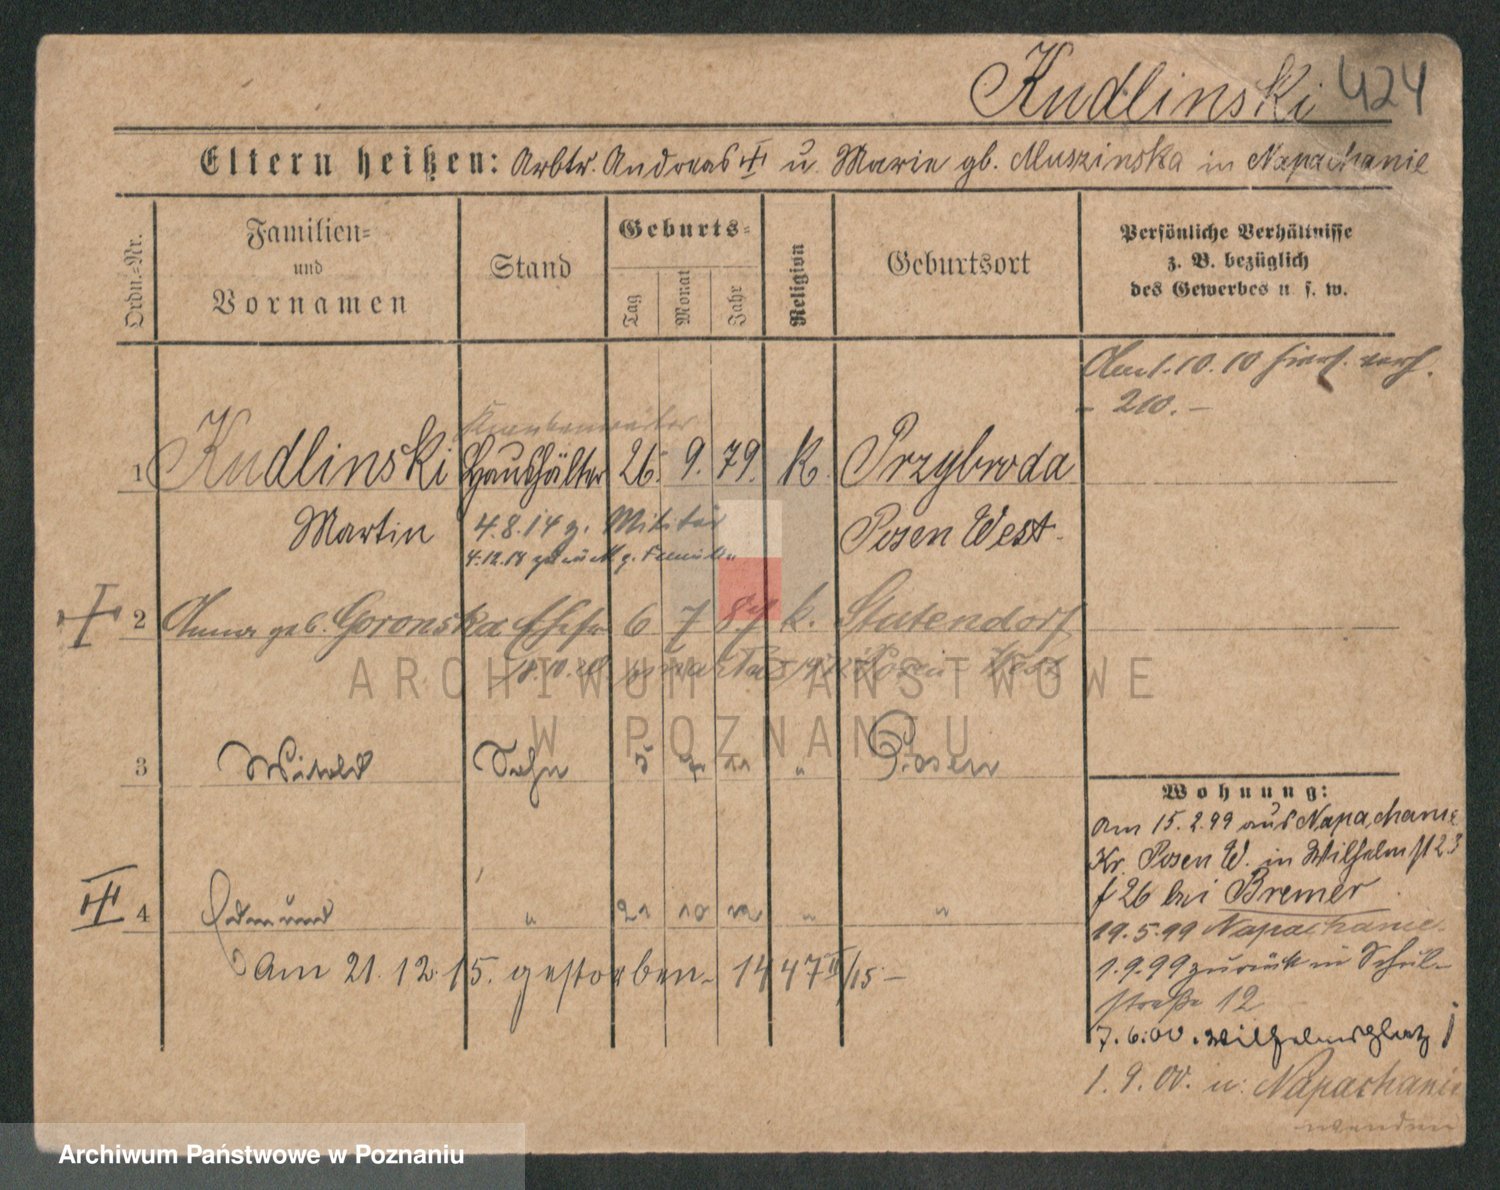 Kudlinski 424
Eltern heißen: Arbtr. Andreas u. Marie gb. Muszinska in Napachanie
Ordn.=Nr.
Familien=
und
Vornamen
Stand
Geburts=
Tag
Monat
Jahr
Religion
Geburtsort
Persönliche Verhältnisse
z. B. bezüglich
des Gewerbes u. s. w.
10.10
- 210. -
Krankenwärter
1 Kudlinski Haushälter 26. 9. 79. K. Przybroda
Martin 4.8.14 z. Militär Posen West.
4.12.18
2 Anna geb. Goronska Ehefr 6 7 87 k. Stutendorf
18.10. Posen West
3 Witold Sohn 5 11 " Posen
4 Edmund " 21 10 12 " "
Am 21.12.15. gestorben - 1447 II/15 -
Wohnung:
Am 15.2.99 aus Napachanie
Kr. Posen W. in Wilhelmst 23
f 26 bei Bremer
19.5.99 Napachanie.
1.9.99 zurück in Schul-
straße 12
7.6.00. Wilhelmsplatz
1.9.00. n. Napachanie
wenden
ARCHIWUM PAŃSTWOWE
W POZNANIU
Archiwum Państwowe w Poznaniu